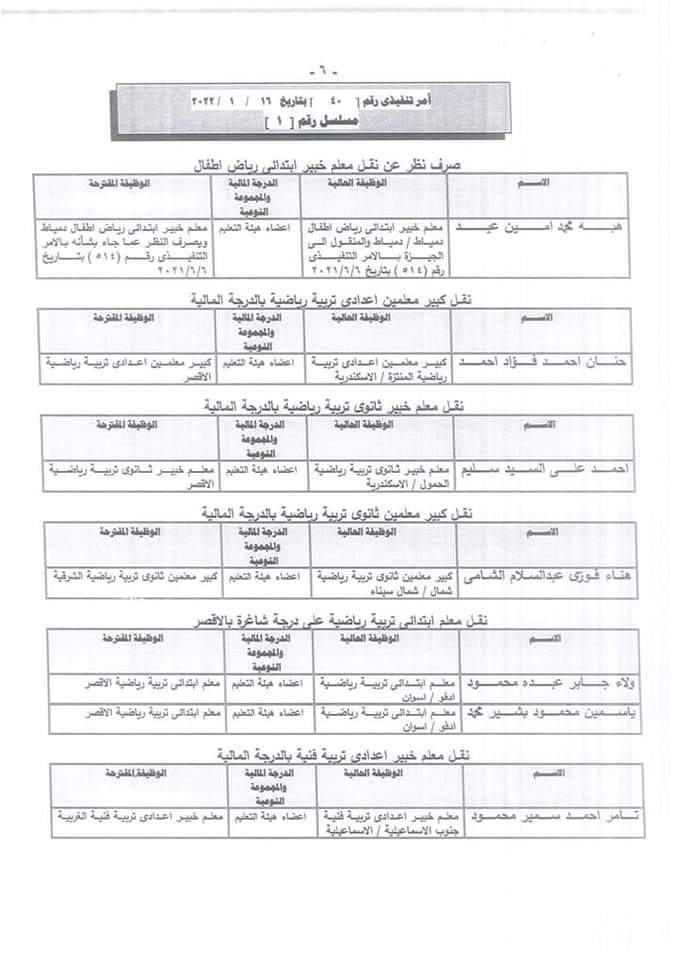 - ٦ -
أمر تنفيذى رقم [ ٤٠ ] بتاريخ ١٦ / ١ / ٢٠٢٢
مسلسل رقم [ ١ ]
صرف نظر عن نقل معلم خبير ابتدائى رياض اطفال
الاســـم الوظيفة الحالية الدرجة المالية والمجموعة النوعية الوظيفة المقترحة
هبـــه محمد امـــين عيـــد
معلم خبير ابتدائى رياض اطفال
دميـاط / دميـاط والمنقول الـى
الجيـزة بـــالامر التنفيـــذى
رقم (٥١٤) بتاريخ ٢٠٢١/٦/٦
اعضاء هيئة التعليم
معلم خبير ابتدائى رياض اطفال دمياط
ويصرف النظر عما جاء بشأنه بالامر
التنفيـذى رقـــم (٥١٤) بتــاريخ
٢٠٢١/٦/٦
نقل كبير معلمين اعدادى تربية رياضية بالدرجة المالية
الاســـم الوظيفة الحالية الدرجة المالية والمجموعة النوعية الوظيفة المقترحة
حنـان احمـد فــؤاد احمـد
كبير معلمين اعدادى تربية
رياضية المنتزة / الاسكندرية
اعضاء هيئة التعليم
كبير معلمين اعدادى تربية رياضية
الاقصر
نقل معلم خبير ثانوى تربية رياضية بالدرجة المالية
الاســـم الوظيفة الحالية الدرجة المالية والمجموعة النوعية الوظيفة المقترحة
احمـد علـى السـيد سـليم
معلم خبير ثانوى تربية رياضية
الحمول / الاسكندرية
اعضاء هيئة التعليم
معلـم خبيـر ثـانوى تربيـة رياضـية
الاقصر
نقل كبير معلمين ثانوى تربية رياضية بالدرجة المالية
الاســـم الوظيفة الحالية الدرجة المالية والمجموعة النوعية الوظيفة المقترحة
هناء فوزى عبدالسلام الشامى
كبير معلمين ثانوى تربية رياضية
شمال / شمال سيناء
اعضاء هيئة التعليم
كبير معلمين ثانوى تربية رياضية الشرقية
نقل معلم ابتدائى تربية رياضية على درجة شاغرة بالاقصر
الاســـم الوظيفة الحالية الدرجة المالية والمجموعة النوعية الوظيفة المقترحة
ولاء جــابر عبـده محمــود
معلـم ابتـدائى تربيـة رياضـية
ادفو / اسوان
اعضاء هيئة التعليم
معلم ابتدائى تربية رياضية الاقصر
ياسـمين محمـود بشـير محمد
معلـم ابتـدائى تربيـة رياضـية
ادفو / اسوان
اعضاء هيئة التعليم
معلم ابتدائى تربية رياضية الاقصر
نقل معلم خبير اعدادى تربية فنية بالدرجة المالية
الاســـم الوظيفة الحالية الدرجة المالية والمجموعة النوعية الوظيفة المقترحة
تـامر احمـد سـمير محمـود
معلـم خبيـر اعـدادى تربيـة فنيـة
جنوب الاسماعيلية / الاسماعيلية
اعضاء هيئة التعليم
معلم خبير اعدادى تربية فنية الغربية